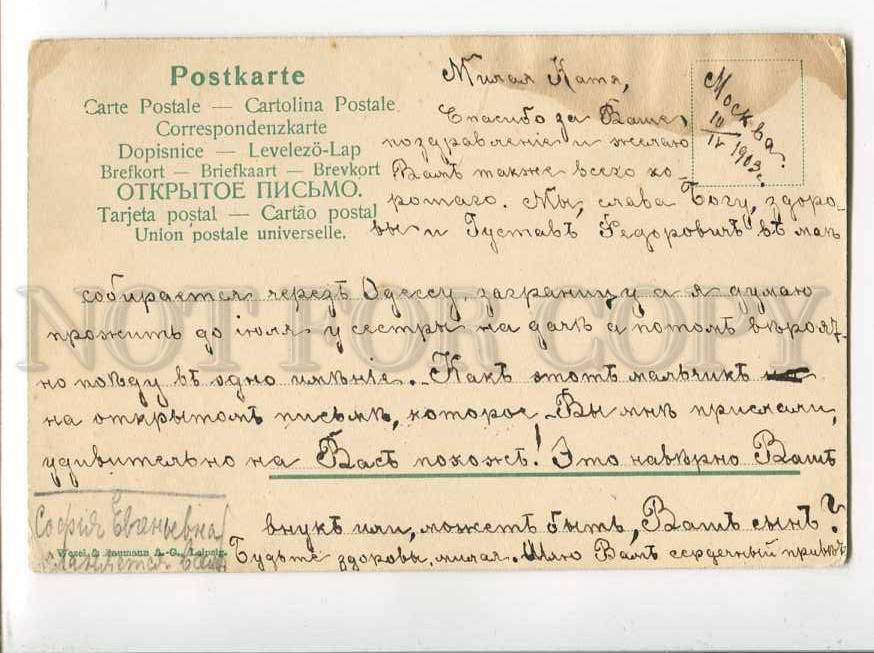 Postkarte
Carte Postale — Cartolina Postale
Correspondenzkarte
Dopisnice — Levelezö-Lap
Brefkort — Briefkaart — Brevkort
ОТКРЫТОЕ ПИСЬМО.
Tarjeta postal — Cartão postal
Union postale universelle.
Москва.
10/IV 1903 г.
Милая Катя,
Спасибо за Ваше
поздравленіе и желаю
Вамъ также всего хо-
рошаго. Мы, слава Богу, здоро-
вы и Густавъ Федоровичъ въ мак
собирается черезъ Одессу, заграницу а я думаю
прожить до іюля у сестры на дачѣ а потомъ вѣроят-
но поѣду въ одно имѣніе. Какъ этотъ мальчикъ
на открытомъ письмѣ, которое Вы мнѣ прислали,
удивительно на Васъ похожъ! Это навѣрно Вашъ
внукъ или, можетъ быть, Вашъ сынъ?
Будьте здоровы, милая. Шлю Вамъ сердечный привѣтъ
Софія Евгеньевна
кланяется Вамъ
Wezel & Naumann A.-G., Leipzig.
NOT FOR COPY